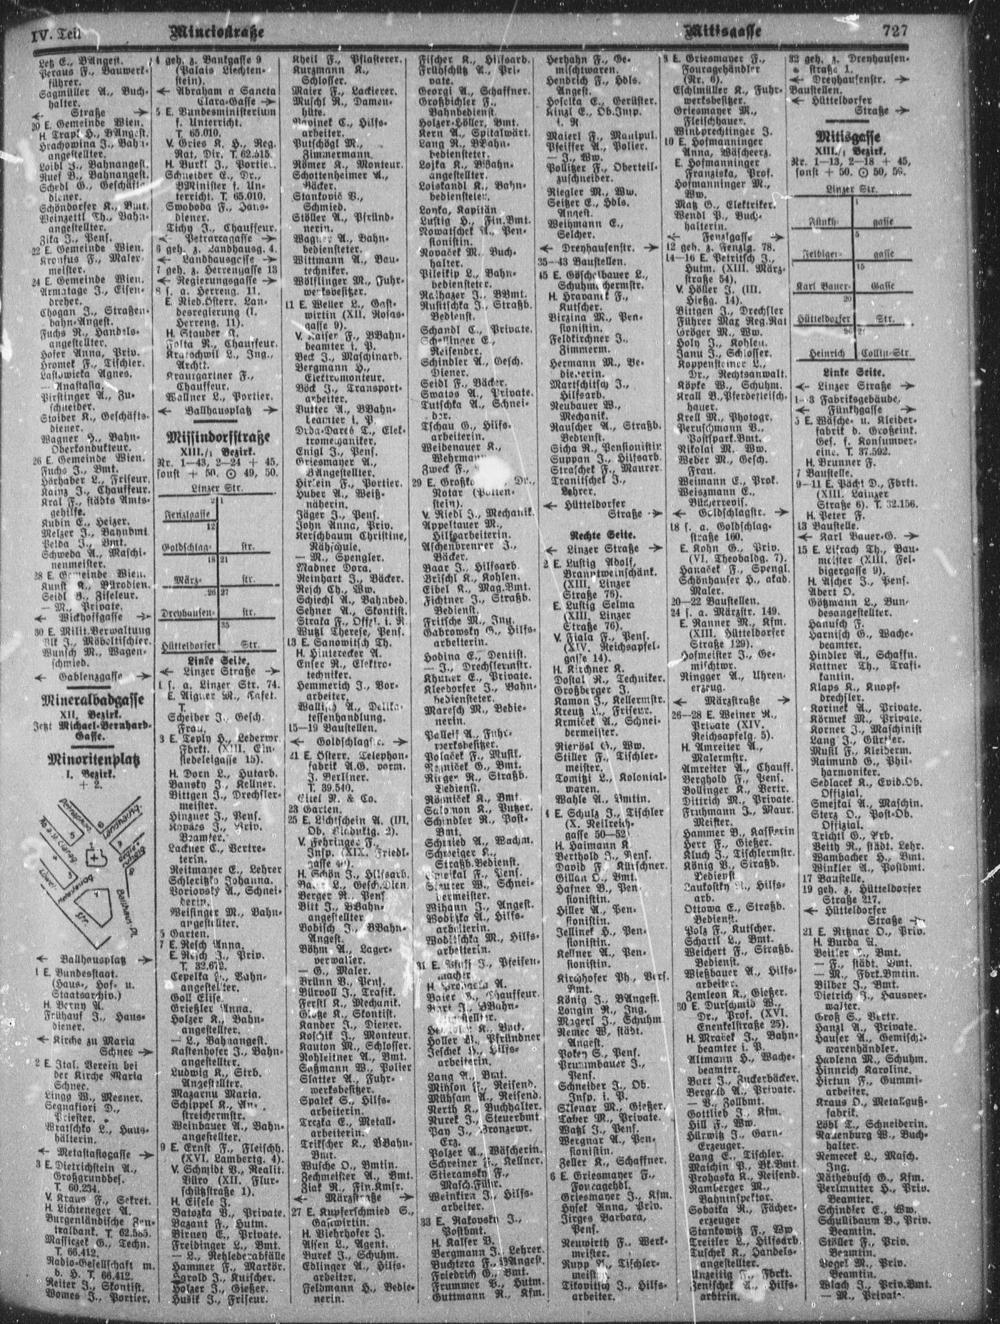 IV. Teil
Mincioſtraße
Mitisgaſſe
727
Letz E., BAngeſt.
Peraus F., Bauwerk-
führer.
Sagmüller A., Buch-
halter.
← Straße →
20 E. Gemeinde Wien.
H. Trapl H., BAngeſt.
angeſtellter.
Loibl J., Bahnangeſt.
Rueſ B., Bahnangeſt.
Schedl G., Geſchäfts-
diener.
Schöndorfer K., Bmt.
Weinzettl Th., Bahn-
angeſtellter.
Zika J., Penſ.
22 E. Gemeinde Wien.
meiſter.
24 E. Gemeinde Wien.
Armatage J., Eiſen-
dreher.
Chogan J., Straßen-
bahn-Angeſt.
Fuchs R., Handels-
angeſtellter.
Hofer Anna, Priv.
Hronek F., Tiſchler.
Laſtowicka Agnes.
— Anaſtaſia.
Pirſtinger A., Zu-
ſchneider.
Stoiber K., Geſchäfts-
diener.
Wagner H., Bahn-
Oberkondukteur.
26 E. Gemeinde Wien.
Fuchs J., Bmt.
Hörhaber L., Friſeur.
Kainz J., Chauffeur.
Kral F., ſtädt. Amts-
gehilfe.
Kubin E., Heizer.
Melzer J., Bahnbmt.
Pelda J., Bmt.
Schweda A., Maſchi-
nenſchloſſer.
28 E. Gemeinde Wien.
Kunſt K., Bürodien.
Seidl B., Ziſeleur.
— M., Private.
← Wickhoffgaſſe →
30 E. Milit.Verwaltung
Wunſch M., Wagen-
ſchmied.
← Gablenzgaſſe →
Mineralbadgaſſe
XII. Bezirk.
Jetzt Michael-Bernhard-
Gaſſe.
Minoritenplatz
I. Bezirk.
+ 2.
← Ballhausplatz →
1 E. Bundesſtaat.
(Haus-, Hof- u.
Staatsarchiv.)
Frühauf J., Haus-
diener.
← Kirche zu Maria
Schnee →
2 E. Ital. Verein bei
der Kirche Maria
Schnee.
Lingg W., Mesner.
Segnafiori D.,
Prieſter.
Wratſchko L., Haus-
hälterin.
← Metaſtaſiogaſſe →
3 E. Dietrichſtein A.,
Großgrundbeſ.
T. 60.234.
V. Kraus F., Sekret.
H. Lichteneger A.
Burgenländiſche Zen-
tralbank.
Maſſiczek G., Techn.
T. 66.412.
Radio-Geſellſchaft m.
b. H. T. 66.412.
Reiter J., Skontiſt.
Womes J., Portier.
4 geh. z. Bankgaſſe 9
(Palais Liechten-
ſtein).
← Abraham a Sancta
Clara-Gaſſe →
5 E. Bundesminiſterium
f. Unterricht.
T. 65.010.
V. Gries K. H., Reg.
Rat, Dir. T. 62.515.
H. Burkl J., Portier.
Schneider E., Dr.,
BMiniſter f. Un-
terricht. T. 65.010.
Swoboda F., Haus-
diener.
Tichy J., Chauffeur.
← Petrarcagaſſe →
6 geh. z. Landhausg. 4.
← Landhausgaſſe →
7 geh. z. Herrengaſſe 13
← Regierungsgaſſe →
8 ſ. a. Herreng. 11.
E. Nied.Öſterr. Lan-
desregierung (I.
Herreng. 11).
H. Stauder A.
Folta R., Chauffeur.
Kratochwil L., Ing.,
Archit.
Kraupartner F.,
Chauffeur.
Wallner L., Portier.
← Ballhausplatz →
Miſſindorfſtraße
XIII./1 Bezirk.
Nr. 1—43, 2—24 + 45,
ſonſt + 50. ⊙ 49, 50.
Linzer Str.
Fenzlgaſſe
12
Goldſchlag- ſtr.
18 21
März- ſtr.
26 27
Dreyhauſen- ſtr.
35
Hütteldorfer Str.
Linke Seite,
← Linzer Straße →
1 ſ. a. Linzer Str. 74.
E. Aigner M., Cafet.
T.
Scheiber J., Geſch.
Frau.
3 E. Teply H., Lederwr.
Fbrkt. (XIII. Ein-
ſiedeleigaſſe 15).
H. Dorn L., Hutarb.
Bansky J., Kellner.
Bittgen J., Drechſler-
meiſter.
Hinzner J., Penſ.
Kovacs J., Priv.
Beamter.
Lacher C., Vertre-
terin.
Reitmayer E., Lehrer
Schleritzko Johanna.
Voriovsky A., Schnei-
derin.
Weiſinger M., Bahn-
angeſtellter.
5 Garten.
7 E. Reſch Anna.
E. Reich J., Priv.
T. 32.672.
Cepelka F., Bahn-
angeſtellter.
Goll Eliſe.
Grießler Anna.
Holzer K., Bahn-
angeſtellter.
— L., Bahnangeſt.
Kaſtenhofer J., Bahn-
angeſtellter.
Ludwig K., Strb.
Angeſtellter.
Mazarnu Maria.
Schippel K., An-
ſtreichermſtr.
Weinbauer A., Bahn-
angeſtellter.
9 E. Ernſt F., Fleiſchh.
(XVI. Lambertg. 4).
V. Schmidt B., Realit.
Büro (XII. Flur-
ſchützſtraße 1).
H. Eiſele J.
Batozka B., Private.
Bazant F., Hutm.
Birney E., Private.
Freibinger L., Bmt.
— L., Rehlederabfälle
Hammer F., Markör.
Harold J., Kutſcher.
Holzer J., Gießer.
Huſik J., Friſeur.
Kheil F., Pflaſterer.
Kurzmann K.,
Schloſſer.
Maier F., Lackierer.
Muſchl R., Damen-
hüte.
Pavinek C., Hilfs-
arbeiter.
Putſchögl M.,
Zimmermann.
Römer K., Monteur.
Schottenheimer A.,
Bäcker.
Stankovic B.,
Schmied.
Stöller A., Pfründ-
nerin.
Wagner A., Bahn-
bedienſteter.
Wittmann A., Bau-
techniker.
Wölflinger M., Fuhr-
werksbeſitzer.
11 E. Weller L., Gaſt-
wirtin (XII. Roſas-
gaſſe 9).
V. Kaiſer F., BBahn-
beamter i. P.
Beck J., Maſchinarb.
Bergmann H.,
Elektromonteur.
Böck J., Transport-
arbeiter.
Butter A., BBahn-
beamter i. P.
Drda-Darré T., Elek-
tromechaniker.
Enigl J., Penſ.
Griesmayer A.,
BAngeſtellter.
Hirlein F., Portier.
Huber A., Weiß-
näherin.
Jäger J., Penſ.
John Anna, Priv.
Kerſchbaum Chriſtine,
Nähſchule.
— M., Spengler.
Madner Dora.
Reinhart J., Bäcker.
Reiſch Th., Ww.
Schiechl A., Bahnbed.
Sehner A., Skontiſt.
Straka F., Offzl. i. R.
Wutzl Thereſe, Penſ.
13 E. Sanowitſch Th.
H. Hinterecker A.
Enſer R., Elektro-
techniker.
Hemmerich J., Vor-
arbeiter.
Walliſch A., Delika-
teſſenhandlung.
15—19 Bauſtellen.
← Goldſchlagſtr. →
21 E. Öſterr. Telephon-
fabrik A.G. vorm.
J. Berliner.
T. 39.540.
Eliel R. & Co.
23 Garten.
25 E. Lichtſchein A. (III.
V. Fehringer F.,
Inſp. (XIX. Friedl-
gaſſe 60).
H. Schön J., Hilfsarb.
Berger M., Penſ.
Bitt J., BBahn-
angeſtellter
Bobiſch J., BBahn-
Angeſt.
Böhm A., Lager-
verwalter.
— G., Maler.
Brünn B., Penſ.
Bürvoll J., Trafik.
Ferſtl K., Mechanik.
Glotze K., Skontiſt.
Kander J., Diener.
Koſchit J., Monteur.
Kauton M., Schloſſer.
Rohleitner A., Bmt.
Saßmann W., Polier
Slatter A., Fuhr-
werksbeſitzer.
Spatek S., Hilfs-
arbeiterin.
Trezka E., Metall-
arbeiterin.
Triſcher K., BBahn-
Bmt.
Wuſche O., Bmtin.
Zechmeiſter A., Bmt.
Ziak R., Fin.Kmſr.
← Märzſtraße →
27 E. Kupferſchmied S.,
Gaſtwirtin.
H. Viehhofer J.
Alſſen L., Agent.
Burek J., Schuhm.
Edlinger A., Hilfs-
arbeiter.
Feldmann H., Bedie-
nerin.
Fiſcher K., Hilfsarb.
Frühſchütz A., Pri-
vate.
Georgi A., Schaffner.
Großbichler F.,
Bahnbedienſt.
Holzer-Höller, Bmt.
Kern A., Spitalwärt.
Lang R., BBahn-
bedienſteter.
Loſka K., BBahn-
angeſtellter.
Loiskandl K., Bahn-
bedienſteter.
Lonka, Kapitän.
Luſtig H., Fin.Bmt.
Nowatſchek A., Pen-
ſioniſtin.
Novacek M., Buch-
halter.
Pileikip L., Bahn-
bedienſteter.
Ruſitſchka J., Straßb.
Bedienſt.
Schandl C., Private.
Schellinger E.,
Reiſender.
Schindler A., Geſch.
Diener.
Seidl F., Bäcker.
Swatos A., Private.
Tutſchka A., Schnei-
der.
Tſchau G., Hilfs-
arbeiterin.
Weibenauer K.,
Wehrmann.
Zweck F.,
Notar (Polten-
ſtein).
V. Riedl J., Mechanik.
Appeltauer M.,
Hilfsarbeiterin.
Aſchenbrenner J.,
Bäcker.
Baar J., Hilfsarb.
Briſchl K., Kohlen.
Eibel K., Mag.Bmt.
Fichtner J., Straßb.
Bedienſt.
Fritſche M., Ing.
Gabrowsky G., Hilfs-
arbeiterin.
Hodina E., Dentiſt.
— J., Drechſlermſtr.
Khuner E., Private.
Kledorfer J., Bahn-
bedienſteter.
Mareſch M., Bedie-
nerin.
Palleiſ A., Fuhr-
werksbeſitzer.
Polacek F., Muſik.
Reznicek G., Bmt.
Rieger R., Straßb.
Bedienſt.
Römiſek K., Bmt.
Salomon K., Putzer.
Schindler R., Poſt-
Bmt.
Schmied A., Wachm.
Schneider K.,
Straßb.Bedienſt.
Smejkal F., Penſ.
Steurer W., Schnei-
dermeiſter.
Wihann J., Angeſt.
Wobitzka A., Hilfs-
arbeiterin.
Woblitſchka M., Hilfs-
arbeiterin.
31 E. Aſſuſſ J., Pfeifen-
macher.
Baier F., Chauffeur.
Bart J., BBahn-
angeſtellter.
Holler M., Pfründner
Jeſchek H., Hilfs-
arbeiterin.
Lang A., Bmt.
Mihſon J., Reiſend.
Mühſam A., Reiſend.
Nerth K., Buchhalter.
Nurek J., Steuerbmt.
Pan J., Bronzewr.
Erz.
Polzer A., Wäſcherin.
Schreiner J., Kellner.
Stieransky F.,
Maſch.Führ.
Weinkirn J., Hilfs-
arbeiterin.
33 E. Rakovsky J.,
Poſtbmt.
H. Kaller B.
Bergmann J., Lehrer.
Buchtera F., BAngeſt.
Friedrich G., Bmt.
Frummet B., Hutm.
Guttmann R., Kfm.
Herhahn F., Ge-
miſchtwaren.
Hendrich F., Hdls.
Angeſt.
Hofelka E., Gerüſter.
Kinzl E., Ob.Inſp.
i. R.
Maierl F., Manipul.
Pfeiffer A., Polier.
— J., Ww.
Pollitzer F., Oberteil-
zuſchneider.
Riegler M., Ww.
Seitzer E., Hdls.
Angeſt.
Weihmann E.,
Selcher.
← Dreyhauſenſtr. →
35—43 Bauſtellen.
45 E. Göſchelbauer L.,
Schuhmachermſtr.
H. Hravank F.,
Kutſcher.
Birzina M., Pen-
ſioniſtin.
Feldkirchner J.,
Zimmerm.
Hermann M., Be-
dienerin.
Martſchitſch J.,
Hilfsarb.
Neubauer W.,
Mechanik.
Rauſcher A., Straßb.
Bedienſt.
Sicha R., Penſioniſtin
Suppan J., Hilfsarb.
Straſchek F., Maurer
Tranitſchek J.,
Lehrer.
← Hütteldorfer
Straße →
Rechte Seite.
← Linzer Straße →
2 E. Luſtig Adolf,
Branntweinſchänk.
(XIII. Linzer
Straße 76).
E. Luſtig Selma
(XIII. Linzer
Straße 76).
V. Fiala F., Penſ.
(XIV. Reichsapfel-
gaſſe 14).
H. Kirchner K.
Doſtal R., Techniker.
Großberger J.
Kamon J., Kellermſtr.
Kreutz L., Friſeur.
Krmicek A., Schnei-
dermeiſter.
Nierösl O., Ww.
Stiller F., Tiſchler-
meiſter.
Tomitzi L., Kolonial-
waren.
Wahle A., Bmtin.
4 E. Schulz J., Tiſchler
(X. Neilreich-
gaſſe 50—52)
H. Haimann K.
Berthold J., Penſ.
David F., Kutſchner.
Gillan O., Bmt.
Haſner B., Pen-
ſioniſtin.
Hiller A., Pen-
ſioniſtin.
Jellinek H., Pen-
ſioniſtin.
Kellner A., Pen-
ſioniſtin.
Kirchhofer Ph., Verſ.
Bmt.
König J., BAngeſt.
Longin R., Ing.
Mogerl J., Schuhm.
Nemec W., ſtädt.
Angeſt.
Pokey S., Penſ.
Prummbauer J.,
Penſ.
Schneider J., Ob.
Inſp. i. P.
Szlenar M., Gießer.
Taber M., Private.
Watzl J., Penſ.
Wergnar A., Pen-
ſioniſtin.
Zeller K., Schaffner.
6 E. Griesmeyer F.,
Fouragehdl.
Griesmeyer J., Kfm.
Hyſek Anna, Priv.
Jirges Barbara,
Penſ.
Neuwirth F., Werk-
meiſter.
Rupp M., Tiſchler-
meiſter.
Tikovitſch J., Hilfs-
arbeiter.
8 E. Griesmeyer F.,
Fouragehändler
(Nr. 6).
Eſchlmüller K., Fuhr-
werksbeſitzer.
Griesmeyer M.,
Fleiſchhauer.
Windprechtinger J.
10 E. Hofmanninger
Anna, Wäſcherz.
E. Hofmanninger
Franziska, Prof.
Hofmanninger M.,
Ww.
Matz G., Elektriker.
Wendl P., Buch-
halterin.
← Fenzlgaſſe →
12 geh. z. Fenzlg. 78.
14—16 E. Petritſch J.,
Hutm. (XIII. März-
ſtraße 54).
V. Höller J. (III.
Hießg. 14).
Bittgen J., Drechſler
Führer Max, Reg.Rat
Gröger M., Ww.
Holy J., Kohlen.
Janu J., Schloſſer.
Koppenſteiner L.,
Dr., Rechtsanwalt.
Köpke W., Schuhm.
Krall B., Pferdefleiſch-
hauer.
Krell M., Photogr.
Peruſchmann B.,
Poſtſpark.Bmt.
Nikolai M., Ww.
Weber M., Geſch.
Frau.
Weimann E., Prok.
Weiszmann E.,
Bücherreviſ.
← Goldſchlagſtr. →
18 ſ. a. Goldſchlag-
ſtraße 160.
E. Kohn G., Priv.
(VI. Theobaldg. 7).
Hanacek F., Spengl.
Schönhauſer H., akad.
Maler.
20—22 Bauſtellen.
24 ſ. a. Märzſtr. 149.
E. Ranner M., Kfm.
(XIII. Hütteldorfer
Straße 129).
Hofmeiſter J., Ge-
miſchtwr.
Ringger A., Uhren-
erzeug.
← Märzſtraße →
26—28 E. Weiner R.,
Private (XIV.
Reichsapfelg. 5).
H. Amreiter A.,
Malermſtr.
Amreiter A., Chauff.
Berghold F., Penſ.
Bollinger K., Vertr.
Dittrich M., Private
Frühmann J., Maur.
Meiſter.
Hammer B., Kaſſierin
Herr F., Gießer.
Kluch J., Tiſchlermſtr.
König B., Straßb.
Bedienſt.
Laukotsky A., Hilfs-
arb.
Ottowa E., Straßb.
Bedienſt.
Polz F., Kutſcher.
Schartl L., Bmt.
Weichert F., Straßb.
Bedienſt.
Wießbauer A., Hilfs-
arbeiter.
Zemleon K., Gießer.
30 E. Durſchmid W.,
Dr., Prof. (XVI.
Enenkelſtraße 25).
H. Mrazek J., Bahn-
beamter i. P.
Altmann H., Wache-
beamter.
Bart J., Zuckerbäcker.
Bergold A., Private.
— B., Zollbmt.
Gottlieb J., Kfm.
Hill F., Ww.
Hürwitz J., Garn-
Erzeuger.
Lang E., Tiſchler.
Maſchin P., Bk.Bmt.
Prohaska K., Reiſend.
Ramberger M.,
Bahninſpektor.
Sobotka R., Fächer-
erzeuger
Stankowitz F., Ww
Treitler L., Hilfsarb.
Tuſchek K., Handels-
Angeſt.
Ungeitig F., Fbrkt.
Zeniſchek A., Hilfs-
arbtrin.
32 geh. z. Dreyhauſen-
ſtraße 1.
← Dreyhauſenſtr. →
Bauſtellen.
← Hütteldorfer
Straße →
Mitisgaſſe
XIII./1 Bezirk.
Nr. 1—13, 2—18 + 45,
ſonſt + 50. ⊙ 50, 56.
Linzer Str.
1
Fünkh- gaſſe
5
Felbiger- gaſſe
15
Karl Bauer- Gaſſe
20
Hütteldorfer Str.
Heinrich Collin-Str.
Linke Seite.
← Linzer Straße →
1—3 Fabriksgebäude.
← Fünkhgaſſe →
5 E. Wäſche- u. Kleider-
fabrik d. Großeink.
Geſ. f. Konſumver-
eine. T. 37.592.
H. Brunner F.
7 Bauſtelle.
9—11 E. Pächt D., Fbrkt.
(XIII. Lainzer
Straße 6). T. 32.156.
H. Peter F.
13 Bauſtelle.
← Karl Bauer-G. →
15 E. Lifrach Th., Bau-
meiſter (XIII. Fel-
bigergaſſe 9).
H. Aſcher J., Penſ.
Abert O.
Götzmann L., Bun-
desangeſtellter.
Hanuſch F.
Harniſch G., Wache-
beamter.
Hindler A., Schaffn.
Kattner Th., Trafi-
kantin.
Klaps K., Knopf-
drechſler.
Korinek A., Private.
Körmet M., Private.
Korner J., Maſchiniſt
Lang J., Gürtler.
Muſil F., Kleiderm.
Raimund G., Phil-
harmoniker.
Sedlacek K., Evid.Ob.
Offizial.
Smejkal A., Maſchin.
Sterz O., Poſt-Ob.
Offizial.
Trichtl G., Prb.
Beith R., ſtädt. Lehr.
Wambacher H., Bmt.
Winkler A., Bmt.
17 Bauſtelle.
19 geh. z. Hütteldorfer
Straße 217.
← Hütteldorfer
Straße →
21 E. Riſznar O., Priv.
H. Burda A.
— F., ſtädt. Bmt.
— M., Fbrk.Bmtin.
Bilber J., Bmt.
Dietrich J., Hausver-
walter.
Groß S., Vertr.
Hanzl A., Private.
Hauſer A., Gemiſcht-
warenhändler.
Hawlena M., Schuhm.
Hinnrich Karoline.
Hirtun F., Gummi-
arbeiter.
Kraus O., Metallguß-
fabrik.
Löbl T., Schneiderin.
Nadenburg W., Buch-
halter.
Nemecek L., Maſch.
Ing.
Näthebuſch G., Kfm.
Perlmutter H., Priv.
Beamter.
Schindler E., Ww.
Schullibaum B., Priv.
Beamtin.
Stöller F., Priv.
Beamtin.
Vogel M., Priv.
Beamtin.
Wlach J., Priv.Bmt.
— M., Privat.